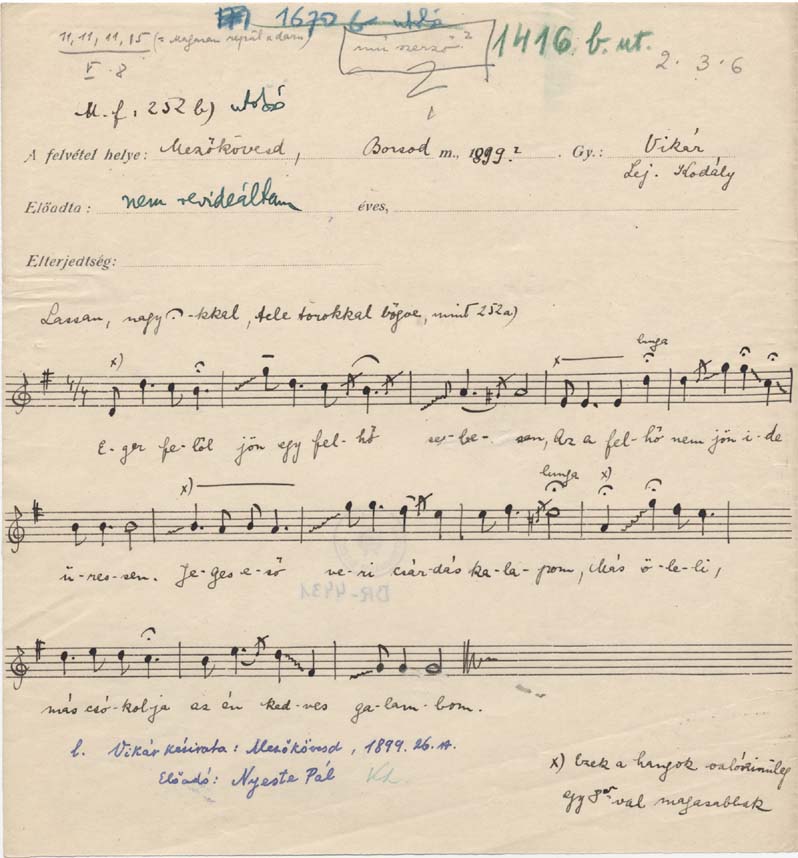 1670 b utolsó
11, 11, 11, 15 (= Magasan repül a daru)
V. 8
mű szerző?
1416. b. ut.
2. 3. 6
M. f. 252 b) utolsó
A felvétel helye: Mezőkövesd, Borsod m., 1899? . Gy.: Vikár
Lej. Kodály
Előadta: nem revideáltam éves,
Elterjedtség:
Lassan, nagy 𝄐-kkal, tele torokkal bőgve, mint 252 a)
x) x lunga
4/4
E-ger fe-lől jön egy fel-hő se-be-sen, Az a fel-hő nem jön i-de
x) lunga x)
ü-res-sen. Je-ges e-ső ve-ri csár-dás ka-la-pom, Más ö-le-li,
DR-4431
más csó-kol-ja az én ked-ves ga-lam-bom.
l. Vikár kézirata: Mezőkövesd, 1899.
Előadó: Nyeste Pál
x) Ezek a hangok valószinüleg
egy 8val magasabbak